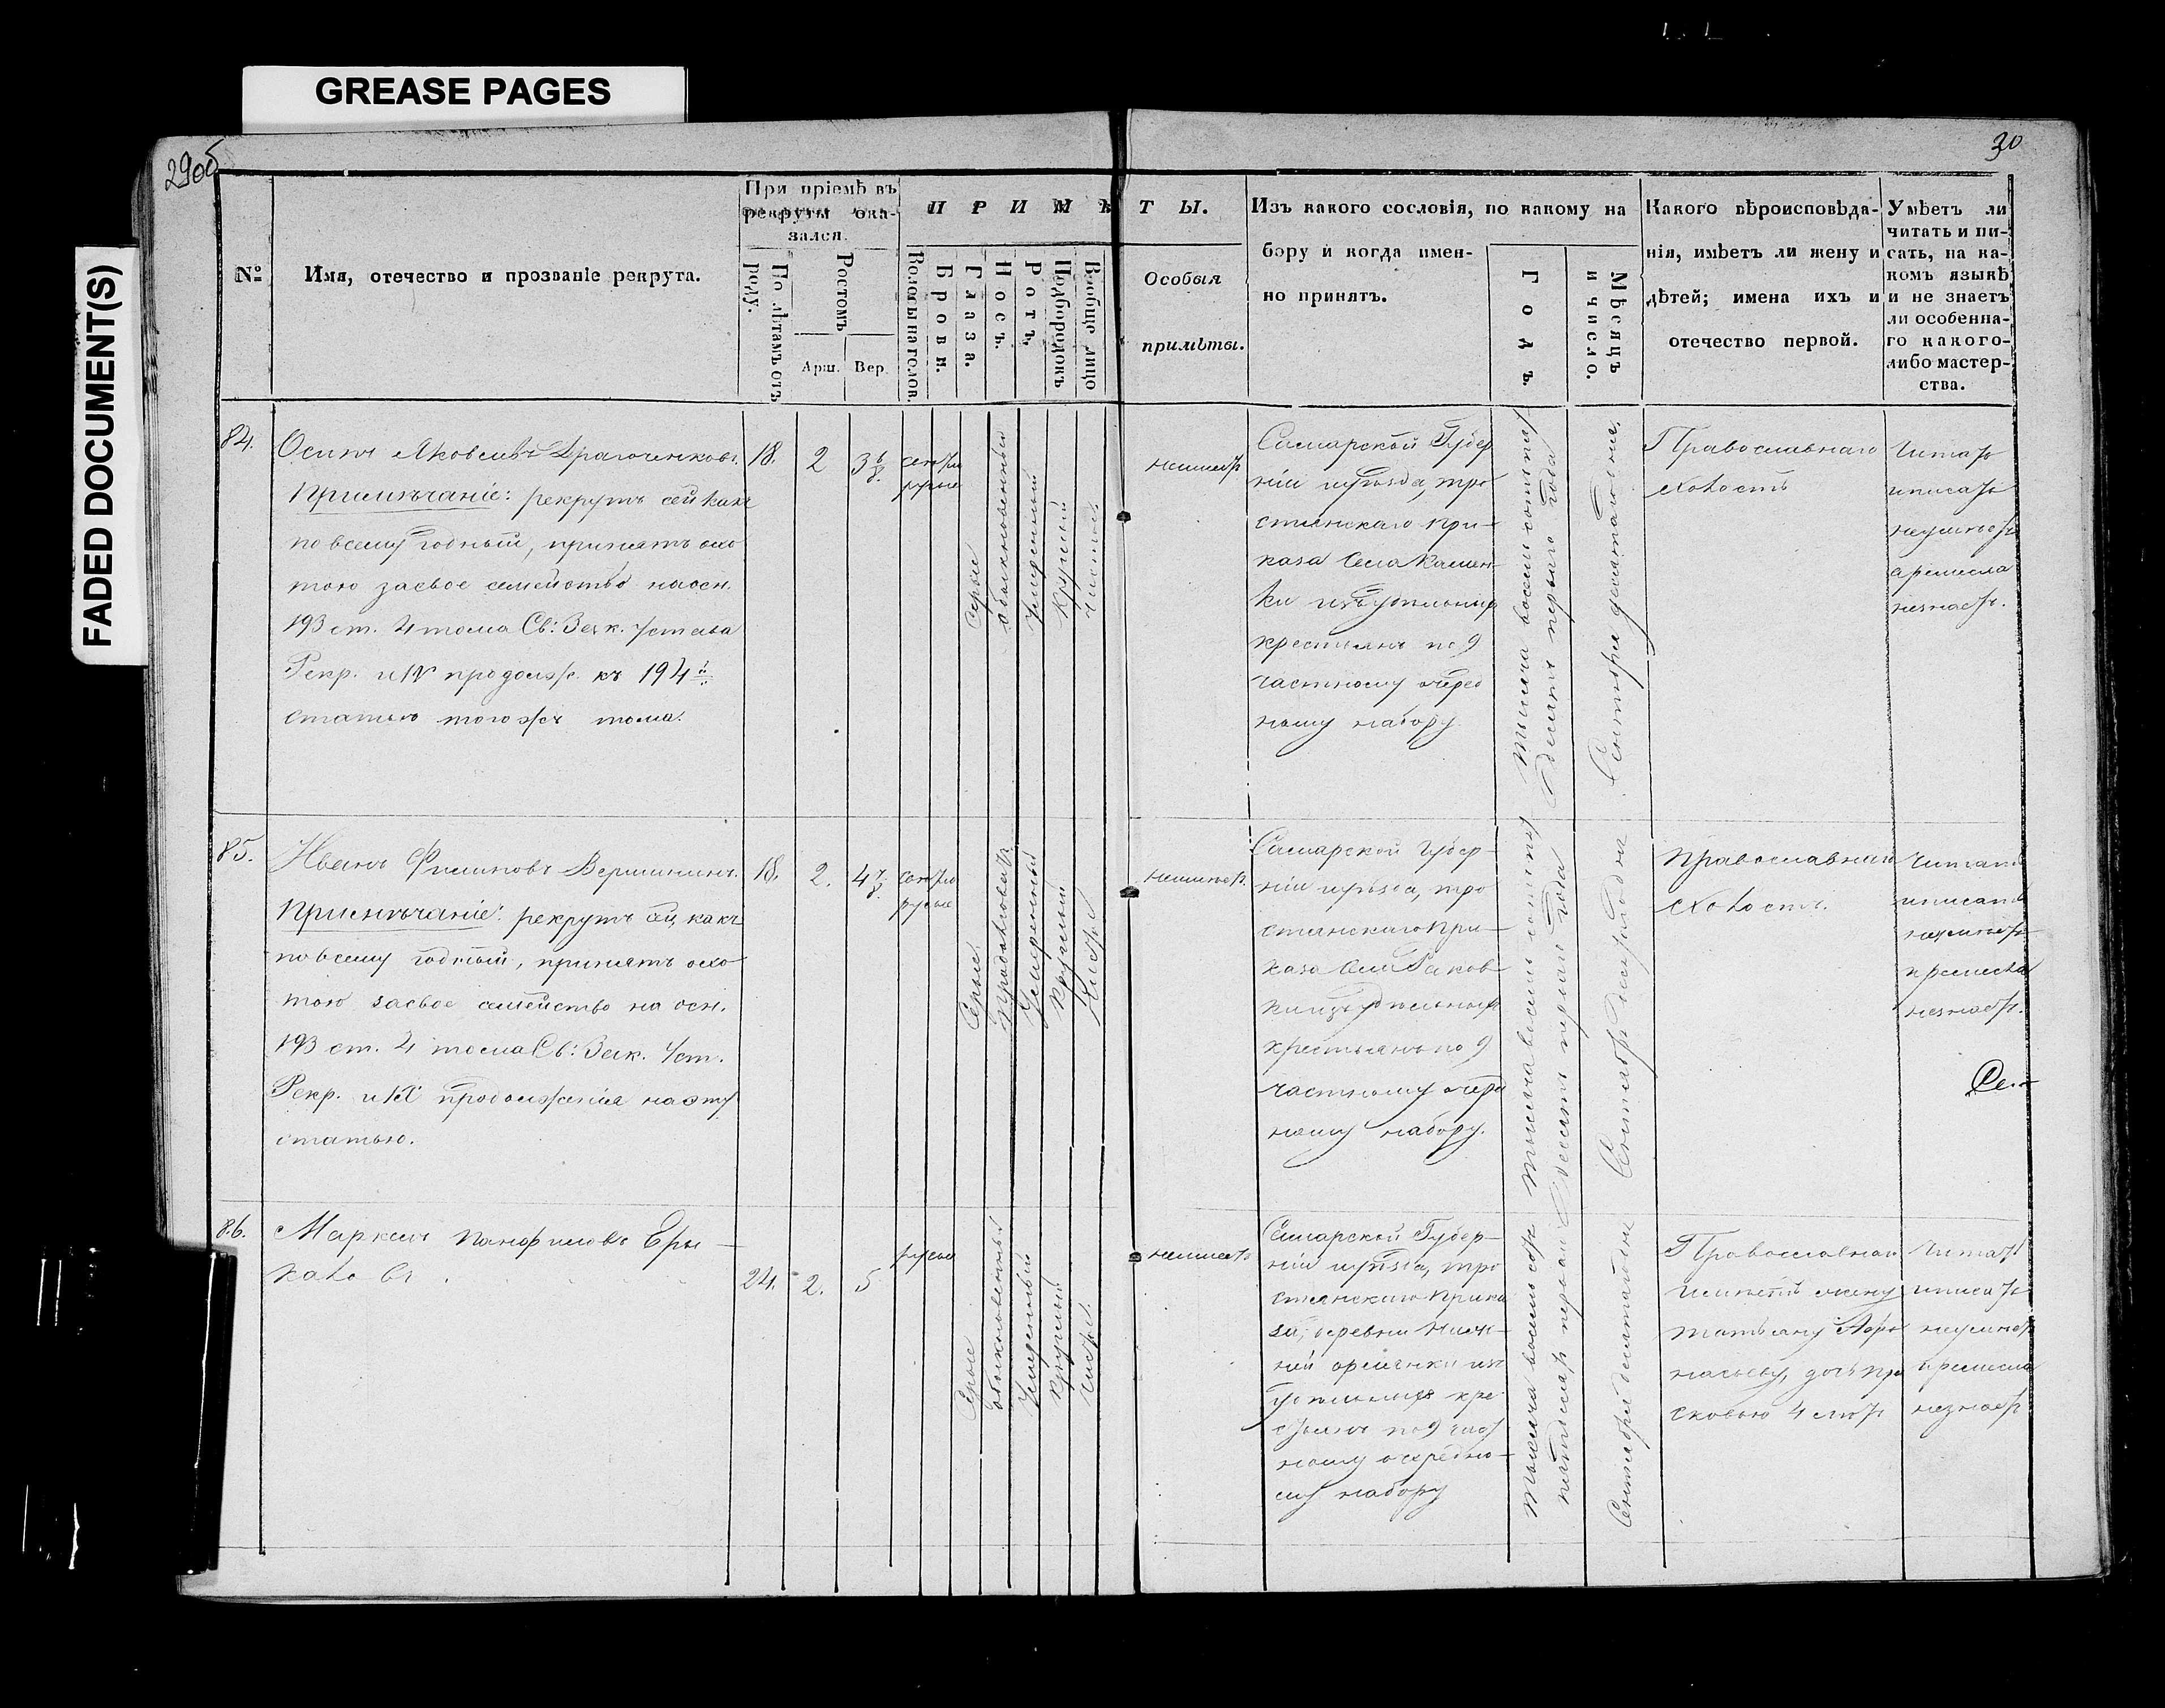 GREASE PAGES
FADED DOCUMENT(S)
29об
30
№
Имя, отечество и прозваніе рекрута.
При пріемѣ въ
рекруты ока-
зался.
По лѣтамъ отъ
роду.
Ростомъ
Арш.
Вер.
ПРИМѢТЫ.
Волосы на голов.
Брови.
Глаза.
Носъ.
Ротъ.
Подбородокъ
Вообще лицо
Особыя
примѣты.
Изъ какого сословія, по какому на
бору и когда имен-
но принятъ.
Годъ.
Мѣсяцъ
и число.
Какого вѣроисповѣда-
нія, имѣетъ ли жену и
дѣтей; имена ихъ и
отечество первой.
Умѣетъ ли
читать и пи-
сать, на ка-
комъ языкѣ
и не знаетъ
ли особенна-
го какого-
либо мастер-
ства.
84.
Осипъ Яковлевъ
Примѣчаніе: рекрутъ сей какъ
по всему годный, принятъ охо
тою засвое семейство наосн.
193 ст. 4 тома Св: Зак. Устава
Рекр. и IV продолж. къ 194й
статью тогожъ тома.
18.
2
3 6/8.
свѣтло
русые
Серые
обыкновенный
умѣренный
Круглый
чистое
неимѣетъ
Самарской Губер
ніи и уѣзда, тро
стянскаго при-
каза Села Камен-
ки изъ удѣльныхъ
крестьянъ по 9
частному очеред
ному набору
Тысяча восемь сотъ пят
десятъ перваго года
Сентября
Православнаго
холостъ
Читать
и писать
неумѣетъ
а ремесла
незнаетъ.
85.
Иванъ Филиповъ Вершининъ.
Примѣчаніе: рекрутъ сей, какъ
повсему годный, принятъ охо
тою засвое семейство на осн.
193 ст. 4 тома Св: Зак. Уст.
Рекр. и IX продолженія на эту
статью.
18.
2.
4 7/8.
свѣтло
русые
Серые
Умѣренный
круглый
Чистое
неимѣетъ.
Самарской Губер-
ніи и уѣзда, тро
стянскаго при-
каза Села Раков
ки изъ удѣльныхъ
крестьянъ по 9
частному очере
ному набору.
Тысяча восемь сотъ пят
десятъ перваго года
Сентября
Православнаго
холостъ.
Читать
и писать
неумѣетъ
и ремесла
незнаетъ.
86.
Маркелъ Панфиловъ Еры-
каловъ
24.
2.
5
русые
Серые
обыкновенный
Умеренный
круглый
Чистое.
неимѣетъ
Самарской Губер-
ніи и уѣзда, тро
стянскаго прика
за, деревни Ниж-
ней орлянки изъ
удѣльныхъ кре
стьянъ по 9 част
ному очередно-
му набору
Тысяча восемьсотъ
пятдесятъ перваго
Сентября
Православнаго
имѣетъ жену
татьяну Афа
насьеву, дочь пра
сковью 4 лѣтъ
Читать
и писать
неумѣетъ
и ремесла
незнаетъ